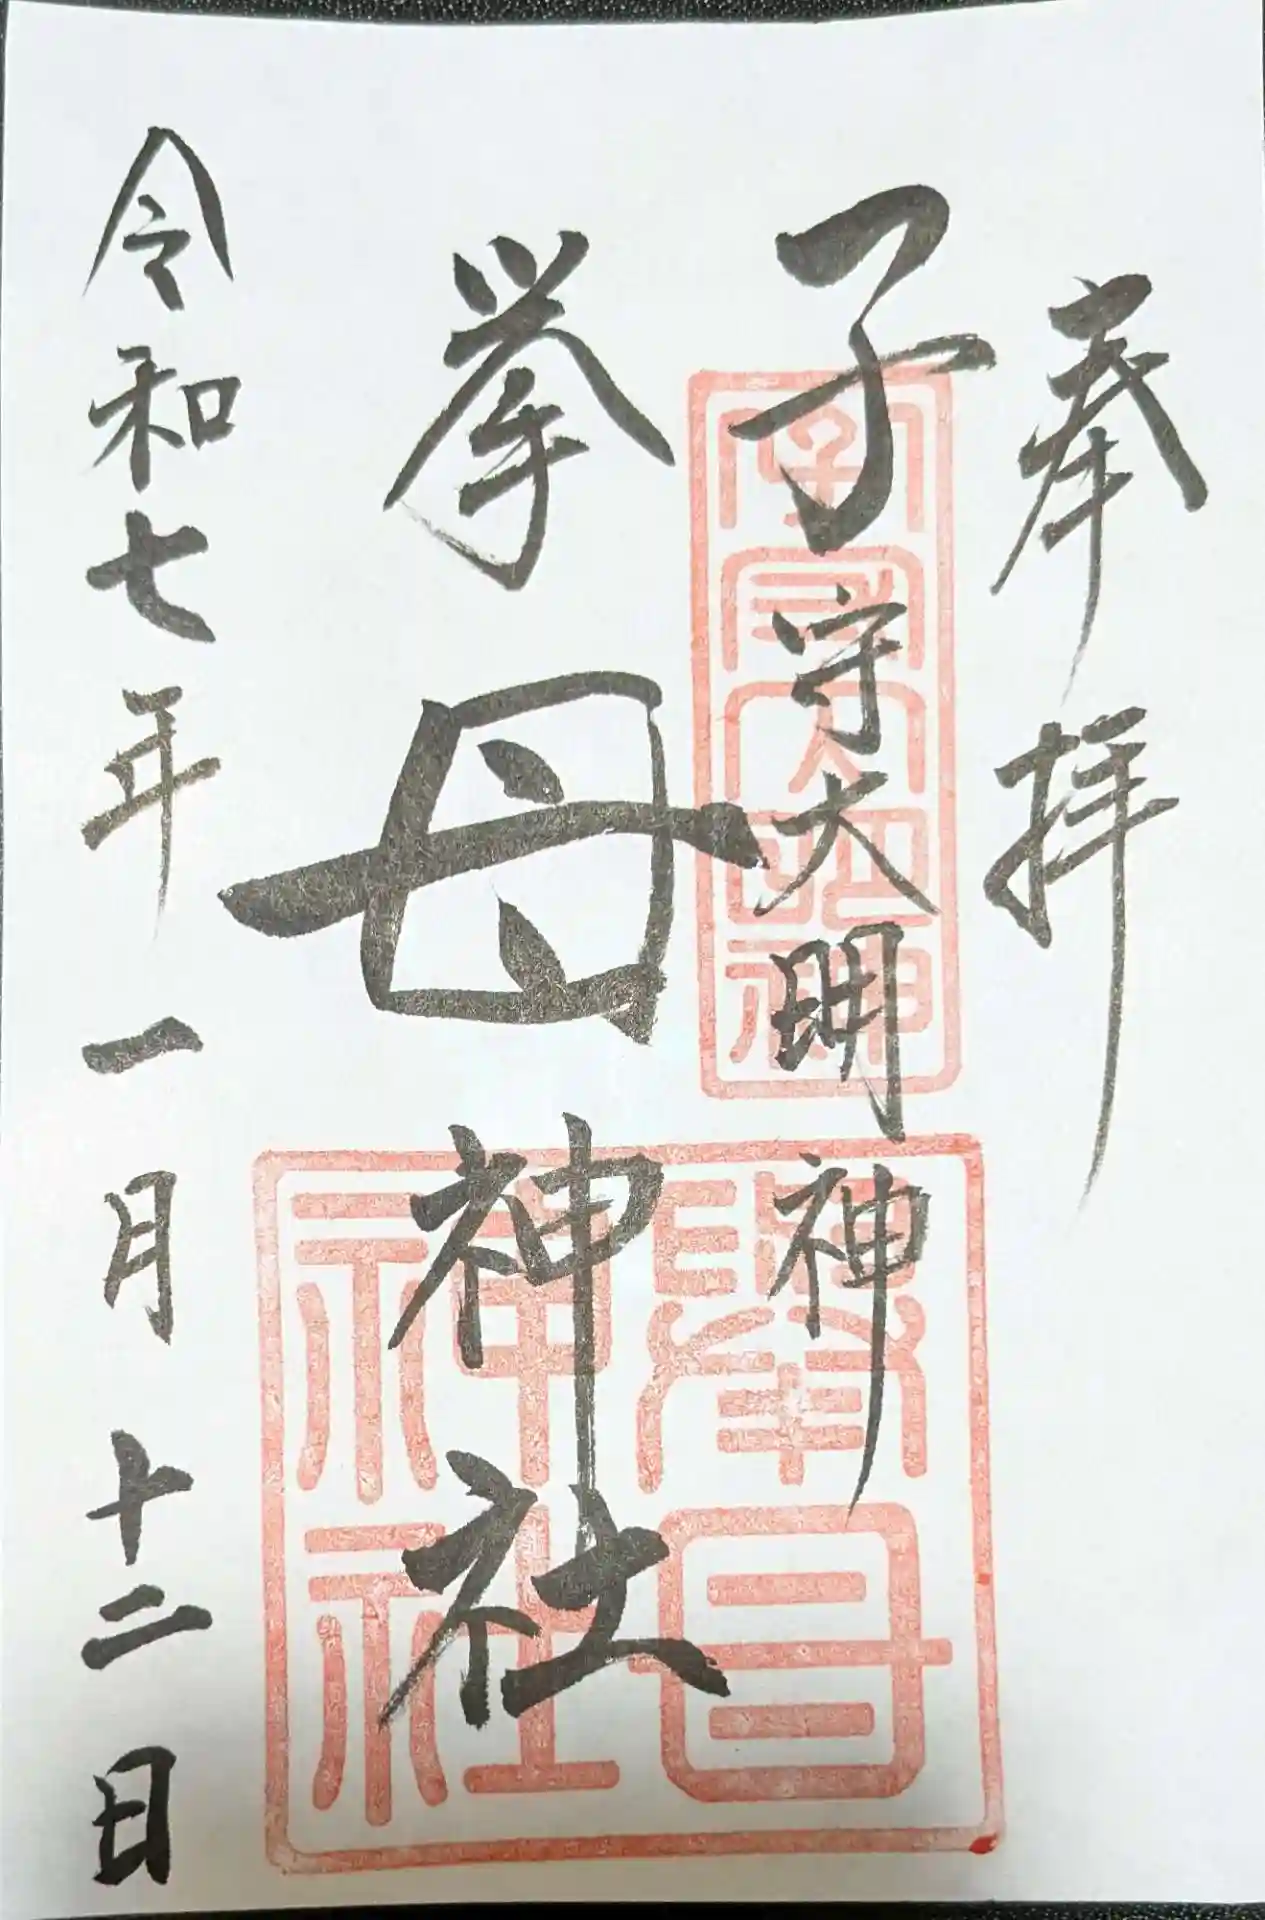 奉拝
子守大明神
挙母神社
令和七年一月十二日
子守大明神
挙母神社